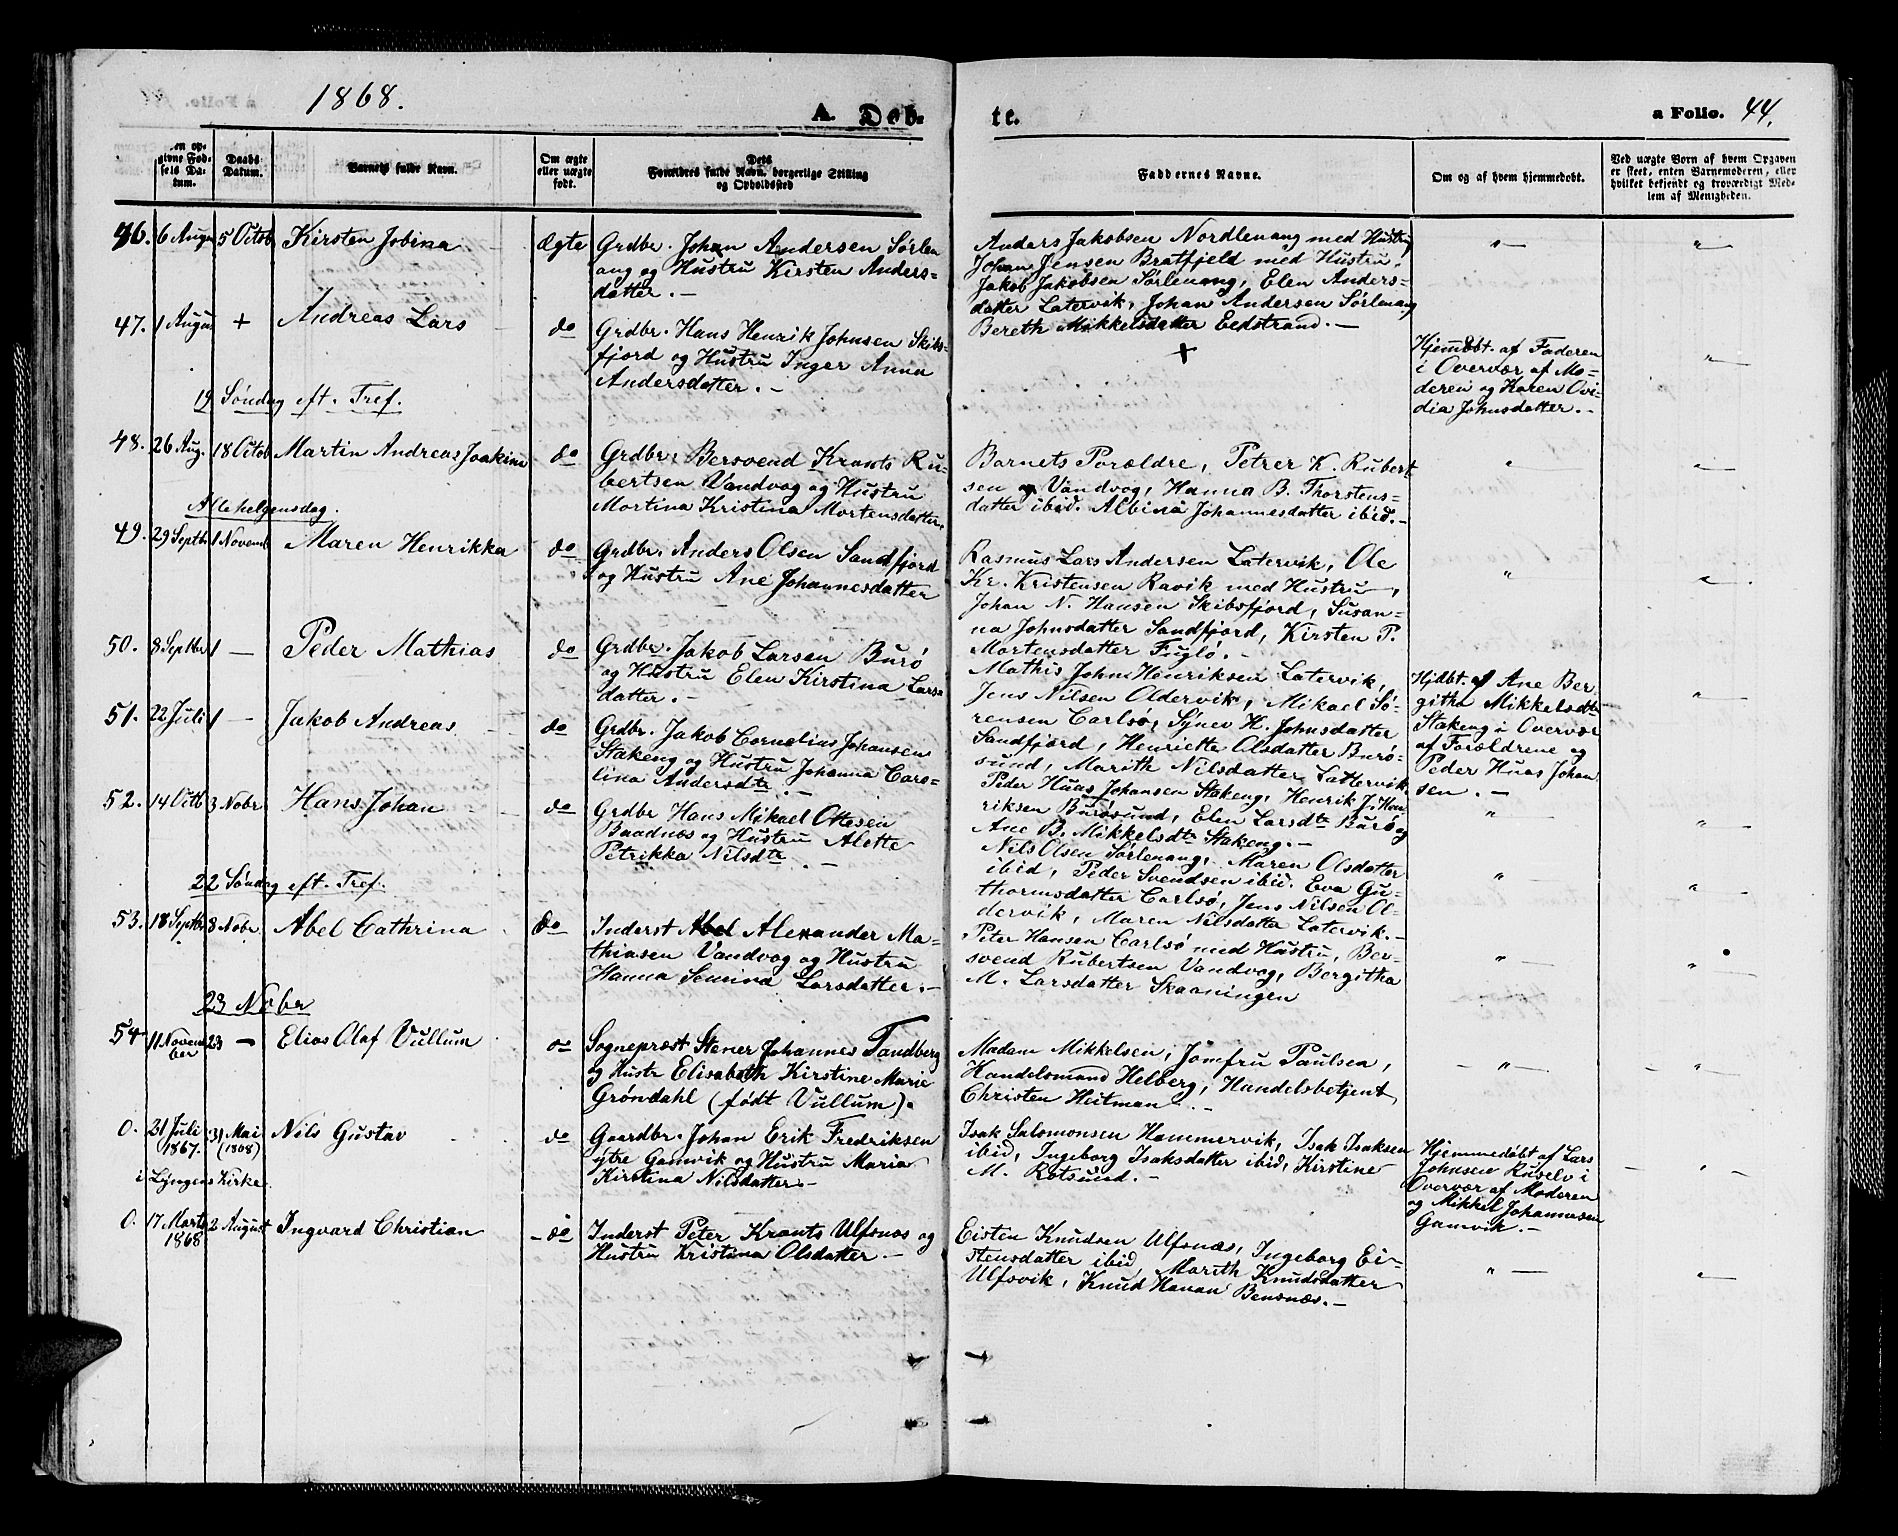 1868.
A. Døb-
te.
a Folio. 44.
Den op-
givne Fød-
sels Da-
tum.
Daabs
Datum.
Barnets fulde Navn.
Om ægte
eller uægte
født.
Dets
Forældres fulde Navn, borgerlige Stilling
og Opholdssted
Faddernes Navne.
Om og af hvem hjemmedøbt.
Ved uægte Børn af hvem Opgaven
er skeet, enten Barnemoderen, eller
hvilket bekjendt og troværdigt Med-
lem af Menigheden.
46. 6 Augu 5 Octob Kirsten Jobina Ægte
Grdbr. Johan Andersen Sørlen
ang og Hustru Kirsten Anders-
datter. -
Anders Jakobsen Nordlenang med Hustru,
Johan Jensen Bratfjeld med Hustru,
Jakob Jakobsen Sørlenang, Elen Anders-
datter Latervik, Johan Andersen Sørlenang
Bereth Mikkelsdatter Eedstrand. -
47. 1 August + Andreas Lars do
Grdbr. Hans Henrik Johnsen Skibs-
fjord og Hustru Inger Anna
Andersdatter. -
+
Hjemdbt. af Faderen
i Overvær af Mo-
deren og Karen Ovi-
dia Johnsdatter. -
19 Søndag eft. Tref.
48. 26 Aug. 18 Octob Martin Andreas Joakim do
Grdbr. Bersvend Krants Ru-
bertsen Vandvog og Hustru
Mortina Kristina Mortensdatter.
Barnets Forældre, Petrer K. Rubert
sen Vandvog, Hanna B. Thorstens-
datter ibid. Albina Johannesdatter ibid. -
Allehelgensdag.
49. 29 Septbr 1 Novemb Maren Henrikka do
Grdbr. Anders Olsen Sandfjord
og Hustru Ane Johannesdatter
Rasmus Lars Andersen Latervik, Ole
Kr. Kristensen Ravik med Hustru,
Johan N. Hansen Skibsfjord, Susan-
na Johnsdatter Sandfjord, Kirsten P.
Mortensdatter Fuglø. -
50. 8 Septbr 1 — Peder Mathias do
Grdbr. Jakob Larsen Burø
og Hustru Elen Kirstina Lars
datter. -
Mathis John Henriksen Latervik,
Jens Nilsen Oldervik, Mikael Sø-
rensen Carlsø, Synev K. Johnsdatter
Sandfjord, Henriette Olsdatter Burø-
sund, Marith Nilsdatter Lattervik
Hjdbt. af Ane Ber
githa Mikkelsdtr
Stakeng i Overvær
af Forældrene og
Peder Huas Johan
sen. -
51. 22 Juli 1 — Jakob Andreas do
Grdbr. Jakob Cornelius Johansen
Stakeng og Hustru Johanna Caro-
lina Andersdtr. -
Peder Huas Johansen Stakeng, Henrik J. Hen
riksen Burøsund, Elen Larsdtr Burø og
Ane B. Mikkelsdtr Stakeng. -
52. 14 Octb 3 Nobr Hans Johan do
Grdbr Hans Mikael Ottesen
Baadnæs og Hustru Alette
Petrikka Nilsdtr. -
Nils Olsen Sørlenang, Maren Olsdatter
ibid, Peder Svendsen ibid. Eva Gu-
thormsdatter Carlsø, Jens Nilsen Ol-
dervik, Maren Nilsdatter Latervik. -
22 Søndag eft. Tref.
53. 18 Septbr 8 Nobr. Abel Cathrina do
Inderst Alexander Ma-
thiasen Vandvog og Hustru
Hanna Semina Larsdatter. -
Peter Hansen Carlsø med Hustru, Ber-
svend Rubertsen Vandvog, Bergitha
M. Larsdatter Skaaningen
23 Nobr
54 11 Novem
ber 23 — Elias Olaf Vullum do
Sognepræst Stener Johannes Tandberg
og Hustr Elisabeth Kirstine Marie
Grøndahl (født Vullum).
Madam Mikkelsen, Jomfru Paulsen,
Handelsmand Helberg, Handelsbetjent
Christen Heitman. -
0. 21 Juli
1867. 31 Mai
(1868) Nils Gustav do
i Lyngens Kirke.
Gaardbr. Johan Erik Fredriksen
ytre Gamvik og Hustru Maria
Kirstina Nilsdatter. -
Isak Salomonsen Hammervik, Isak Isaksen
ibid, Ingeborg Isaksdatter ibid, Kirstine
M. Rotsund. -
Hjemmedøbt af Lars
Johnsen Ruselv i
Overvær af Moderen
og Mikkel Johannesen
Gamvik. -
0. 17 Marts
1868 2 August Ingvard Christian do
Inderst Peter Krants Ulfsnæs og
Hustru Kristina Olsdatter. -
Eisten Knudsen Ulfsnæs, Ingeborg Ei-
stensdatter ibid, Marith Knudsdatter
Ulfsvik, Knud Hanan Bensnæs. -